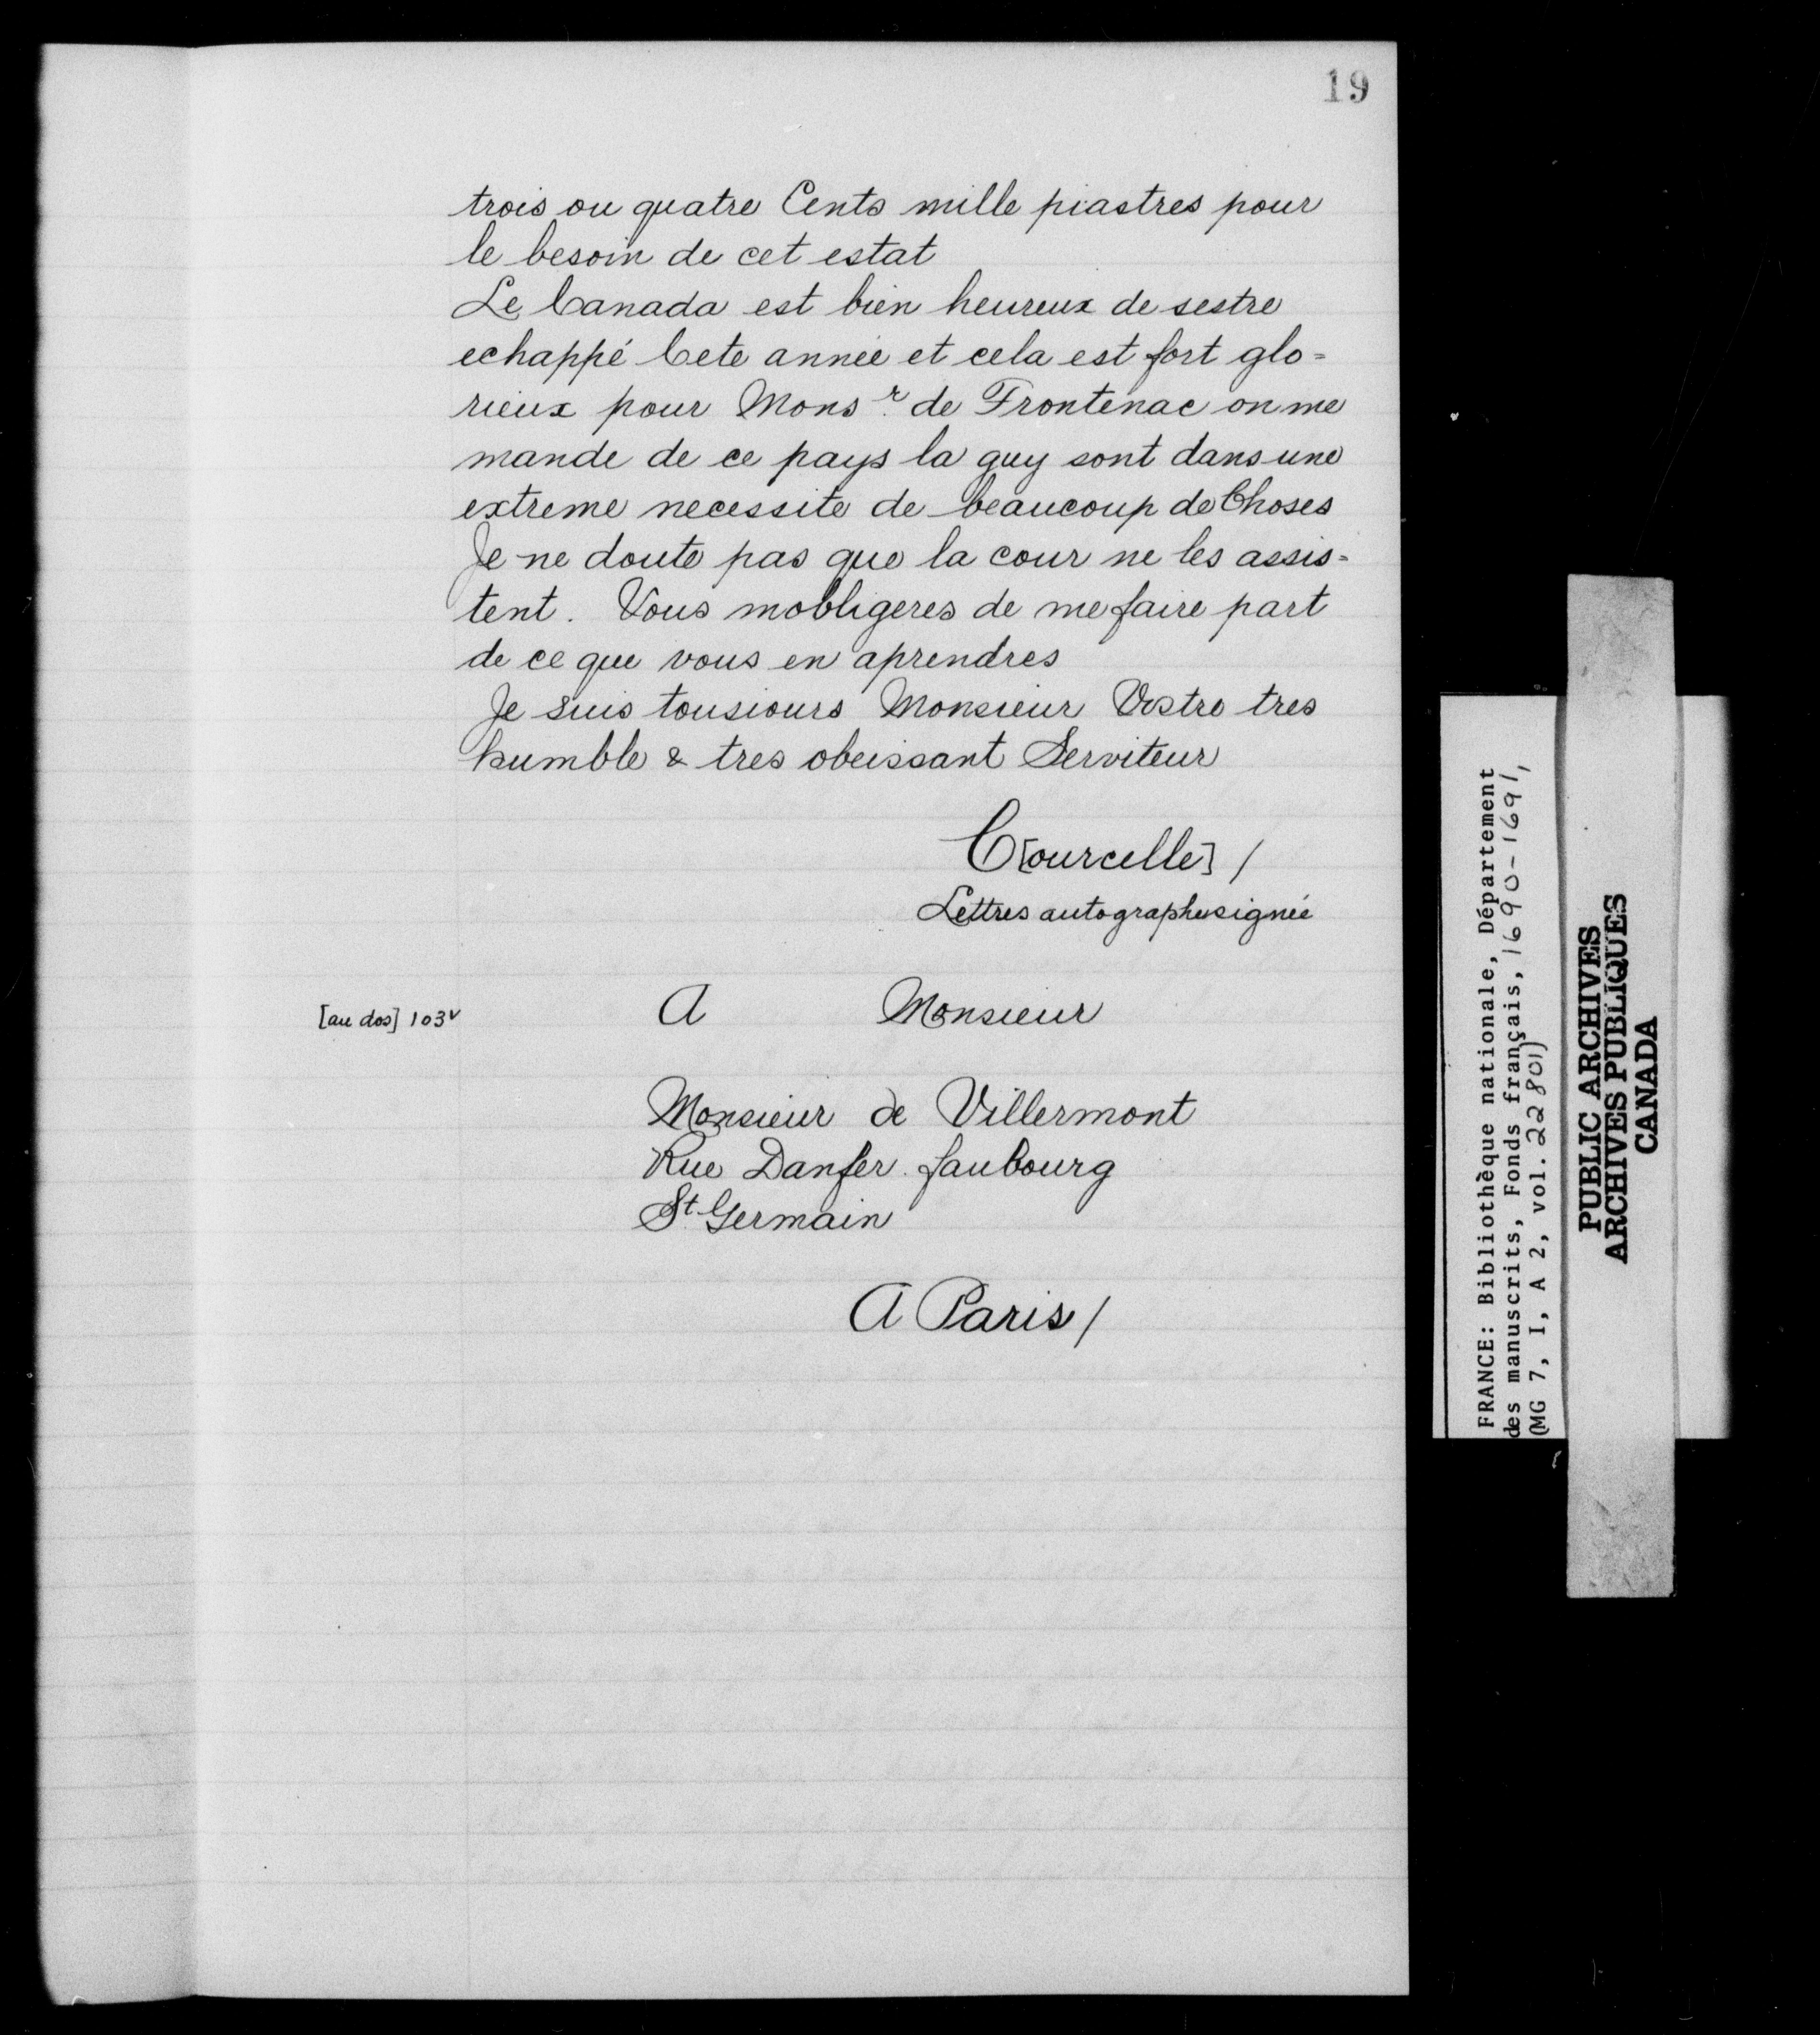 19
trois ou quatre Cents mille piastres pour
le besoin de cet estat
Le Canada est bien heureux de sestre
echappé Cete année et cela est fort glo=
rieux pour Monsr. de Frontenac on me
mande de ce pays la quy sont dans une
extreme necessite de beaucoup de Choses
Je ne doute pas que la cour ne les assis=
tent. Vous mobligeres de me faire part
de ce que vous en aprendres
Je suis tousiours Monsieur Vostre tres
humble & tres obeissant Serviteur
C[ourcelle] /
Lettres autographe signée
[au dos] 103v
A Monsieur
Monsieur de Villermont
Rue Danfer faubourg
St Germain
A Paris /
FRANCE: Bibliothèque nationale, Département
des manuscrits, Fonds français, 1690-1691,
(MG 7, I, A 2, vol. 22801)
PUBLIC ARCHIVES
ARCHIVES PUBLIQUES
CANADA